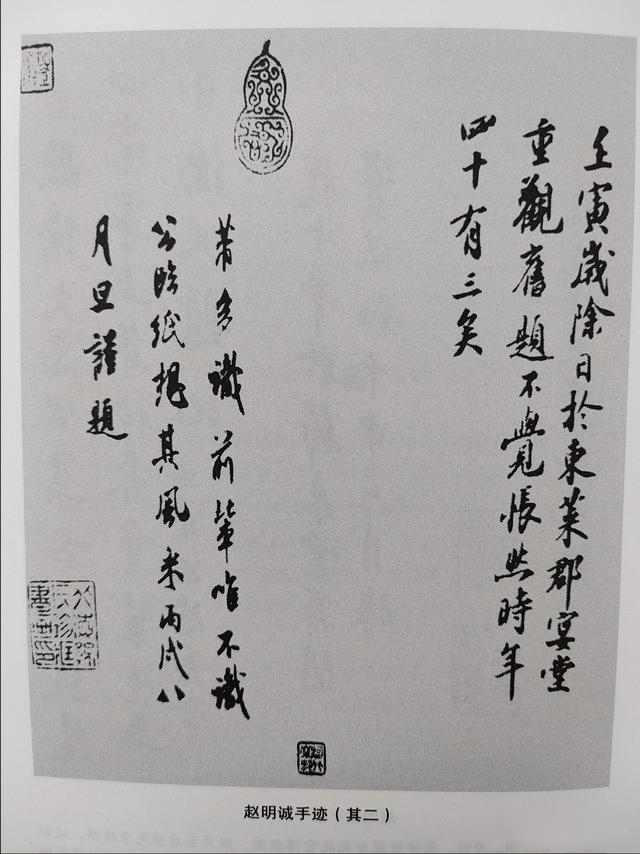 壬寅歲除日於東萊郡宴堂
重觀舊題不覺悵然時年
四十有三矣
芾多識前輩唯不識
公臨紙想其風采丙戌八
月旦謹題
赵明诚手迹（其二）